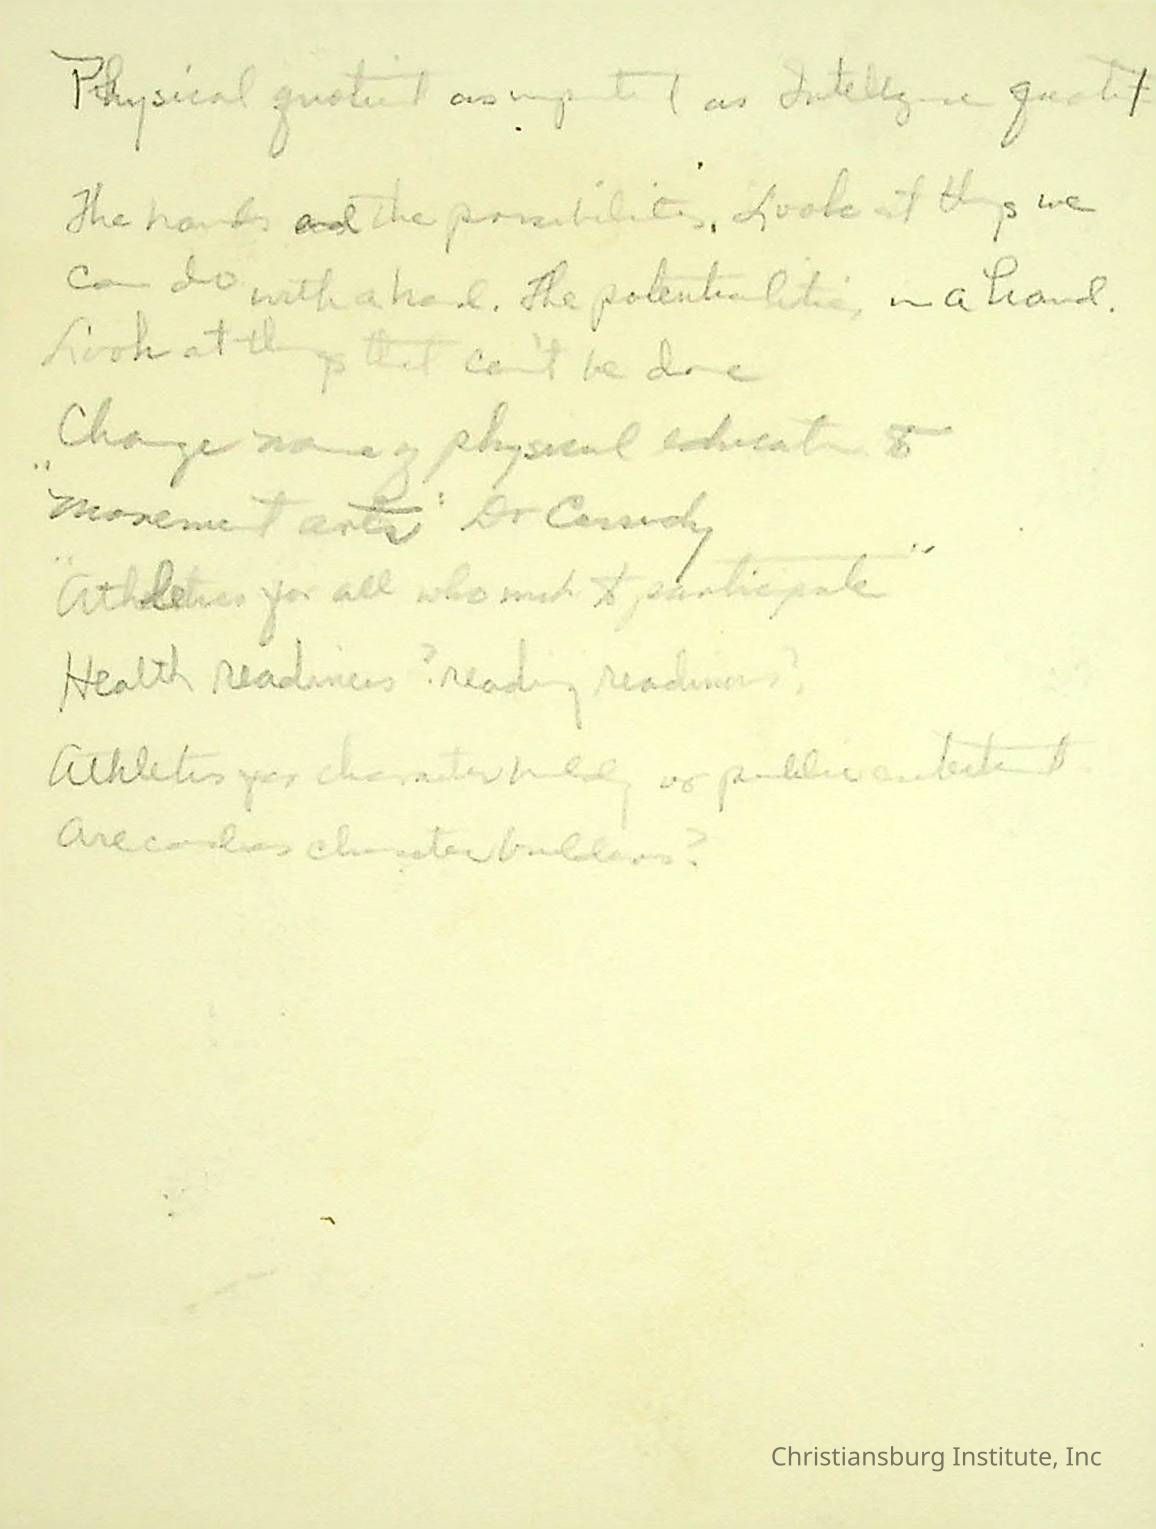 Physical quotient as important as Intelligence quotient
The hands and the possibilities. Look at things we
can do with a hand. The potentialities in a hand.
Look at things that can't be done
Change name of physical education to
"movement arts" Dr Cassidy
"Athletics for all who wish to participate"
Health readiness? reading readiness?
Athletics for character building or public entertainment
Are coaches character builders?
Christiansburg Institute, Inc